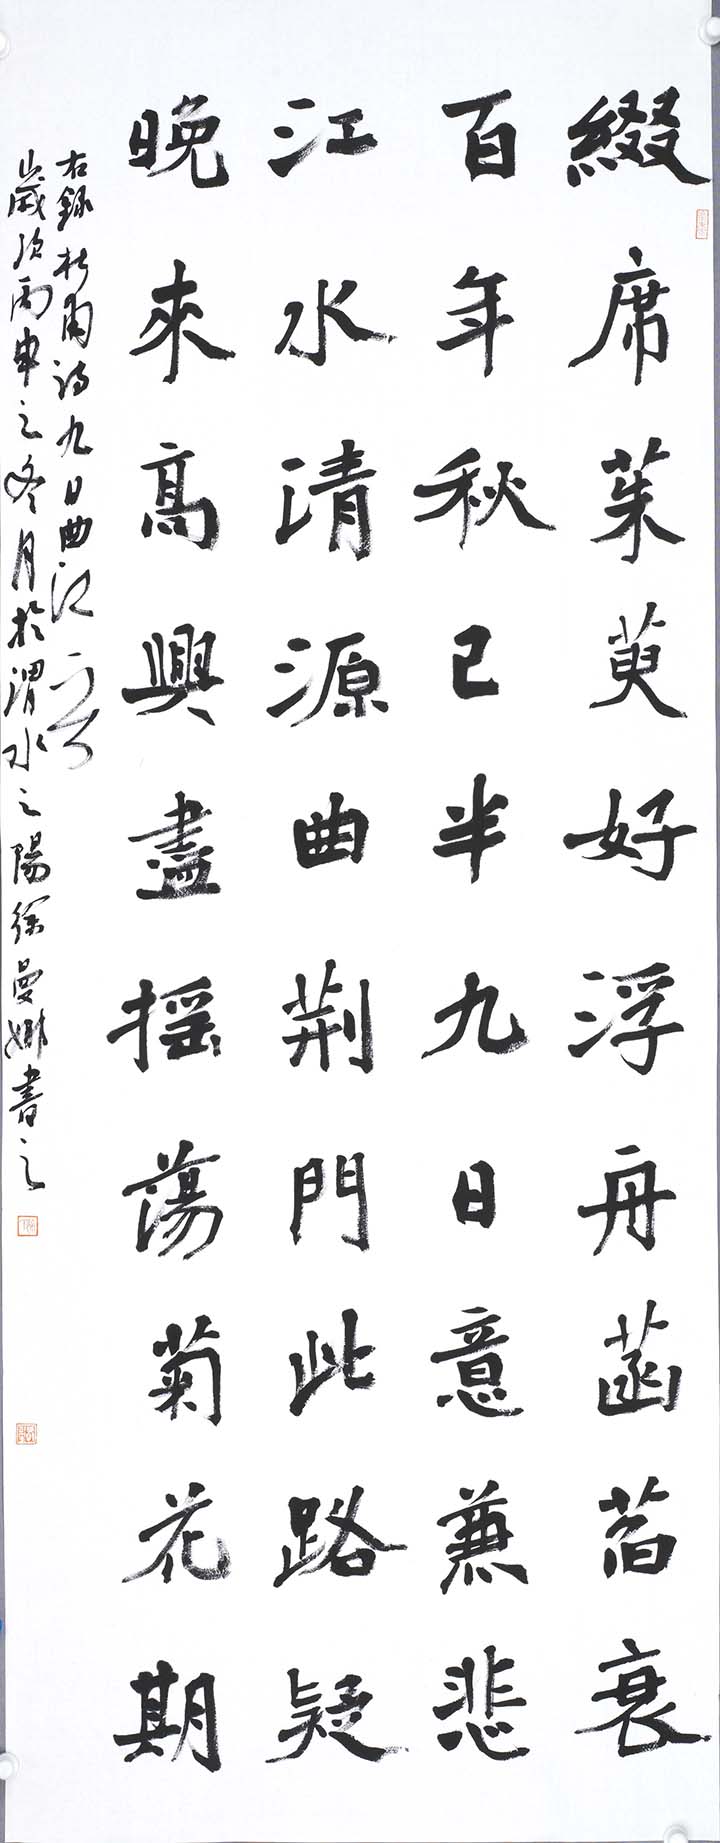 綴席茱萸好浮舟菡萏衰
百年秋已半九日意兼悲
江水清源曲荆門此路疑
晚來高興盡摇蕩菊花期
右録杜甫詩九日曲江一首
歲次丙申之冬月於渭水之陽徐曼娜書之